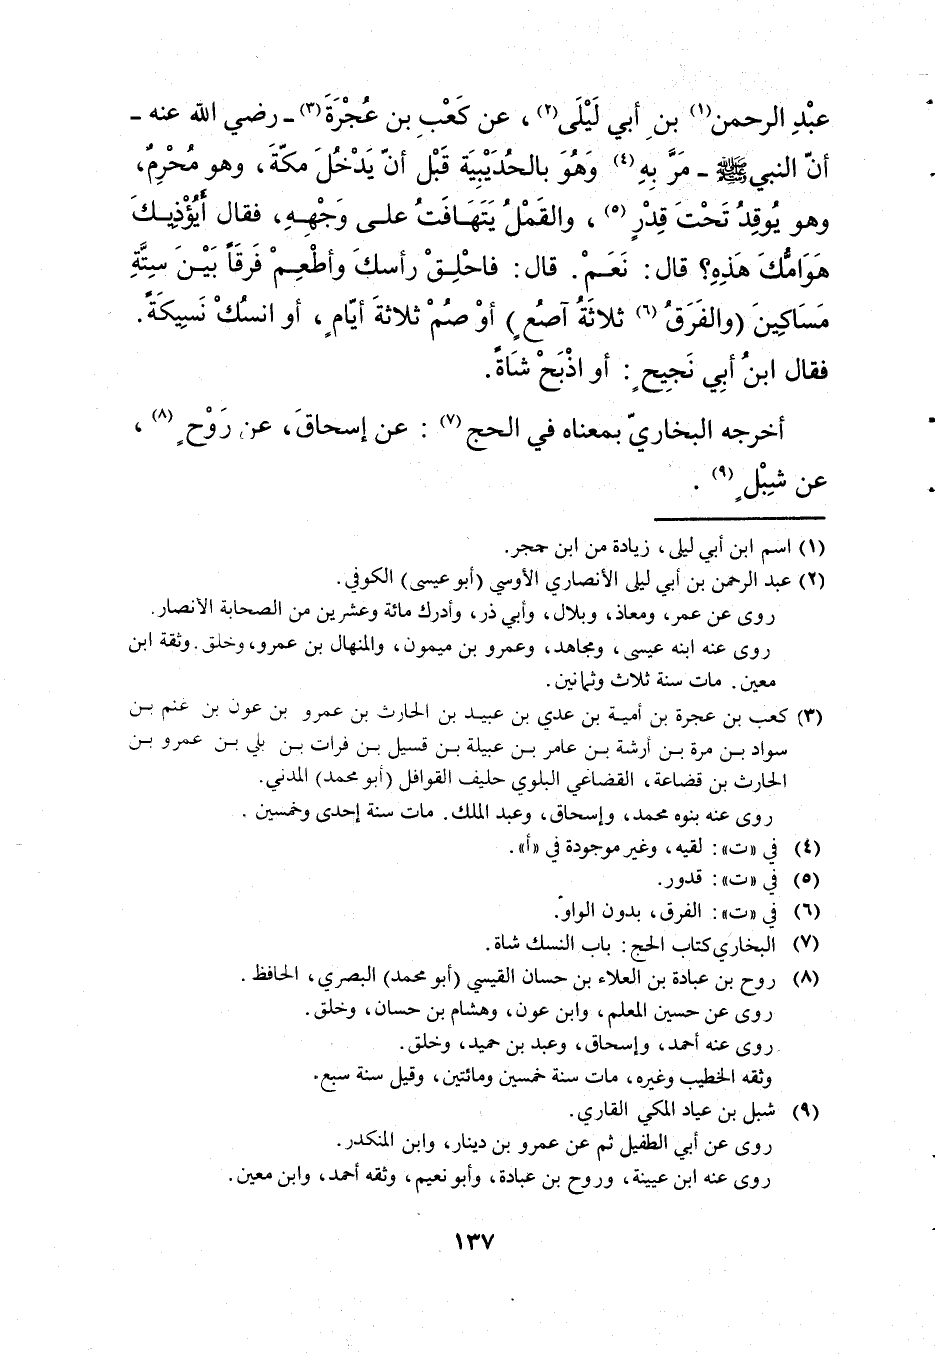 عبْدِ الرحمن(١) بن أبي لَيْلَى(٢) ، عن كَعْبِ بن عُجْرَةَ(٣) ـ رضي الله عنه ـ
أنّ النبي ﷺ ـ مَرَّ بِهِ(٤) وَهُوَ بالحُدَيْبِيَة قَبْل أنّ يَدْخُلَ مكّةَ، وهو مُحْرِمٌ،
وهو يُوقِدُ تَحْتَ قِدْرٍ(٥) ، والقَمْلُ يَتَهَافَتُ على وَجْهِهِ، فقال أَيُؤْذِيكَ
هَوَامُّكَ هَذِهِ؟ قال: نَعَمْ. قال: فاحْلِقْ رأسكَ وأطْعِمْ فَرَقَاً بَيْنَ سِتَّةِ
مَسَاكِينَ (والفَرَقُ(٦) ثلاثَةُ آصُعٍ) أوْ صُمْ ثلاثةَ أيّامٍ، أو انسُكْ نَسِيكَةً.
فقال ابنُ أبِي نَجِيحٍ: أو اذْبَحْ شَاةً.
أخرجه البخاريّ بمعناه في الحج(٧) : عن إسحاقَ، عن رَوْحٍ(٨) ،
عن شِبْلٍ(٩) .
(١) اسم ابن أبي ليلى، زيادة من ابن حجر.
(٢) عبد الرحمن بن أبي ليلى الأنصاري الأوسي (أبو عيسى) الكوفي.
روى عن عمر، ومعاذ، وبلال، وأبي ذر، وأدرك مائة وعشرين من الصحابة الأنصار.
روى عنه ابنه عيسى، ومجاهد، وعمرو بن ميمون، والمنهال بن عمرو، وخلق. وثقة ابن
معين. مات سنة ثلاث وثمانين.
(٣) كعب بن عجرة بن أمية بن عدي بن عبيد بن الحارث بن عمرو بن عون بن غنم بن
سواد بن مرة بن أرشة بن عامر بن عبيلة بن قسيل بن فرات بن بلي بن عمرو بن
الحارث بن قضاعة، القضاعي البلوي حليف القوافل (أبو محمد) المدني.
روى عنه بنوه محمد، وإسحاق، وعبد الملك. مات سنة إحدى وخمسين .
(٤) في «ت»: لقيه، وغير موجودة في «أ».
(٥) في «ت»: قدور.
(٦) في «ت»: الفرق، بدون الواو.
(٧) البخاري كتاب الحج: باب النسك شاة.
(٨) روح بن عبادة بن العلاء بن حسان القيسي (أبو محمد) البصري، الحافظ .
روى عن حسين المعلم، وابن عون، وهشام بن حسان، وخلق.
روى عنه أحمد، وإسحاق، وعبد بن حميد، وخلق.
وثقه الخطيب وغيره، مات سنة خمسين ومائتين، وقيل سنة سبع.
(٩) شبل بن عياد المكي القاري.
روى عن أبي الطفيل ثم عن عمرو بن دينار، وابن المنكدر.
روى عنه ابن عيينة، وروح بن عبادة، وأبو نعيم، وثقه أحمد، وابن معين.
١٣٧